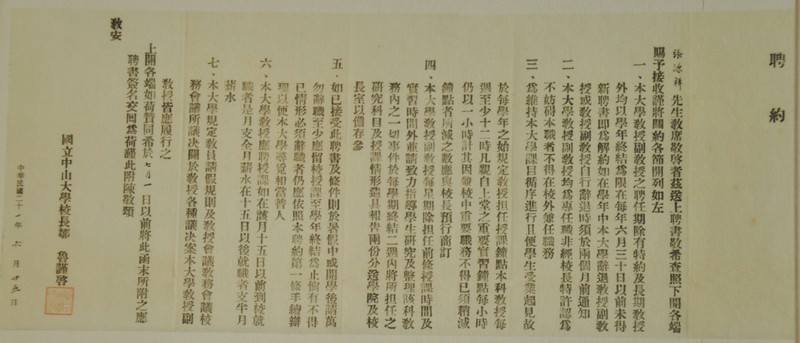 聘約
張 先生敎席敬啓者茲送上聘書敬希查照下開各端
賜予接收謹將聘約各節開列如左
一、本大學敎授副敎授之聘任期除有特約及長期敎授
外均以學年終結爲限在每年六月三十日以前未得
新聘書即爲解約如在學年中本大學辭退敎授副敎
授或敎授副敎授自行辭退時須於兩個月前通知
二、本大學敎授副敎授均爲專任職非經校長特許認爲
不妨碍本職者不得在校外兼任職務
三、爲維持本大學課目循序進行且使學生受業起見故
於每學年之始規定敎授担任授課鐘點本科敎授每
週至少十二時凡親自上堂之重要實習鐘點每小時
仍以一小時計其因兼校中重要職務不得已須稍減
鐘點者所減之數應與校長預行商訂
四、本大學敎授副敎授每星期除担任前條授課時間及
實習時間外並請致力指導學生研究及整理該科敎
務內之一切事件於每學期終結二週內將所担任之
研究科目及授課情形造具報告兩份分送學院及校
長室以備存參
五、如已接受此聘書及條件則於暑假中或開學後請萬
勿辭職至少應留校授課至學年終結爲止倘有不得
已情形必須辭職者仍應依照本聘約第一條手續辦
理以便本大學尋覓相當替人
六、本大學敎授應聘授課如在該月十五日以前到校就
職者是月支全月薪水在十五日以後就職者支半月
薪水
七、本大學規定敎員請假規則及敎授會議敎務會議校
務會議所議决關於敎授各種議决案本大學敎授副
敎授皆應履行之
上開各端如荷贊同希於七月一日以前將此函末所附之應
聘書簽名交回爲荷謹此附陳敬頌
敎安
國立中山大學校長鄒 魯謹啓
中華民國二十一年六月十五日